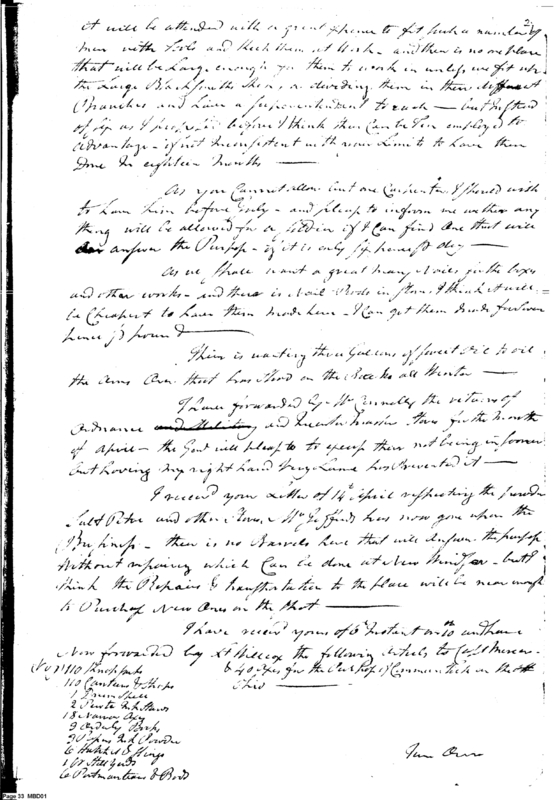 2
it will be attended with a great Expence to fit such a number of
men with Tools and keep them at Work - and there is no one place
that will be Large enough for them to work in unless we fit up
the Large Blacksmiths Shop, or dividing them in their different
Branches and have a Superintendent to each - but instead
of six as I proposed before I think there Can be Ten employed to
advantage - if not inconsistent with your Limits to have them
done In eighteen Months -
As you Cannot allow but one Carpenter I should wish
to have him before July - and please to inform me wether any
thing will be allowed for a Soldier if I Can find One that will
answer the Purpose - if it is only six pence pr day -
As we shall want a great many Nails for the boxes
and other works - and there is Nail Rods in Store I think it will
be Cheapest to have them made here - I Can get them made for Seven
pence pr pound -
There is wanting three Gallons of Sweet Oil to oil
the Arms Over that has Stood on the Racks all Winter -
I have forwarded by Mr the returns of
Ordnance and Military and Quarter Master Stores for the Month
of April - the Genl will please to excuse there not being in sooner
but having my right hand Very Lame has Prevented it -
I receivd your Letter of 14th April respecting the
Salt Petre and other Stores Mr has now gone upon the
Business - there is no Barrels here that will Answer the purpose
Without repairing which Can be done at New Windsor - but I
think the Repairs & Transportation to the place will be near enough
to Purchase New Ones on the Spot -
I have receivd yours of 6th Instant on 10th and have
Now forwarded by Lt Willcox the following Articles to Capt
110 Knapsacks
& 40 for the Purpose of on the
110 Canteens & Straps
Ohio -
1
2 Pewter Ink Stands
18 Narrow Axes
9 Orderly Books
9 Papers Ink Powder
6 Hatchets & Slings
1 Stillyards
6 Portmanteaus &
Page 33 MBD01